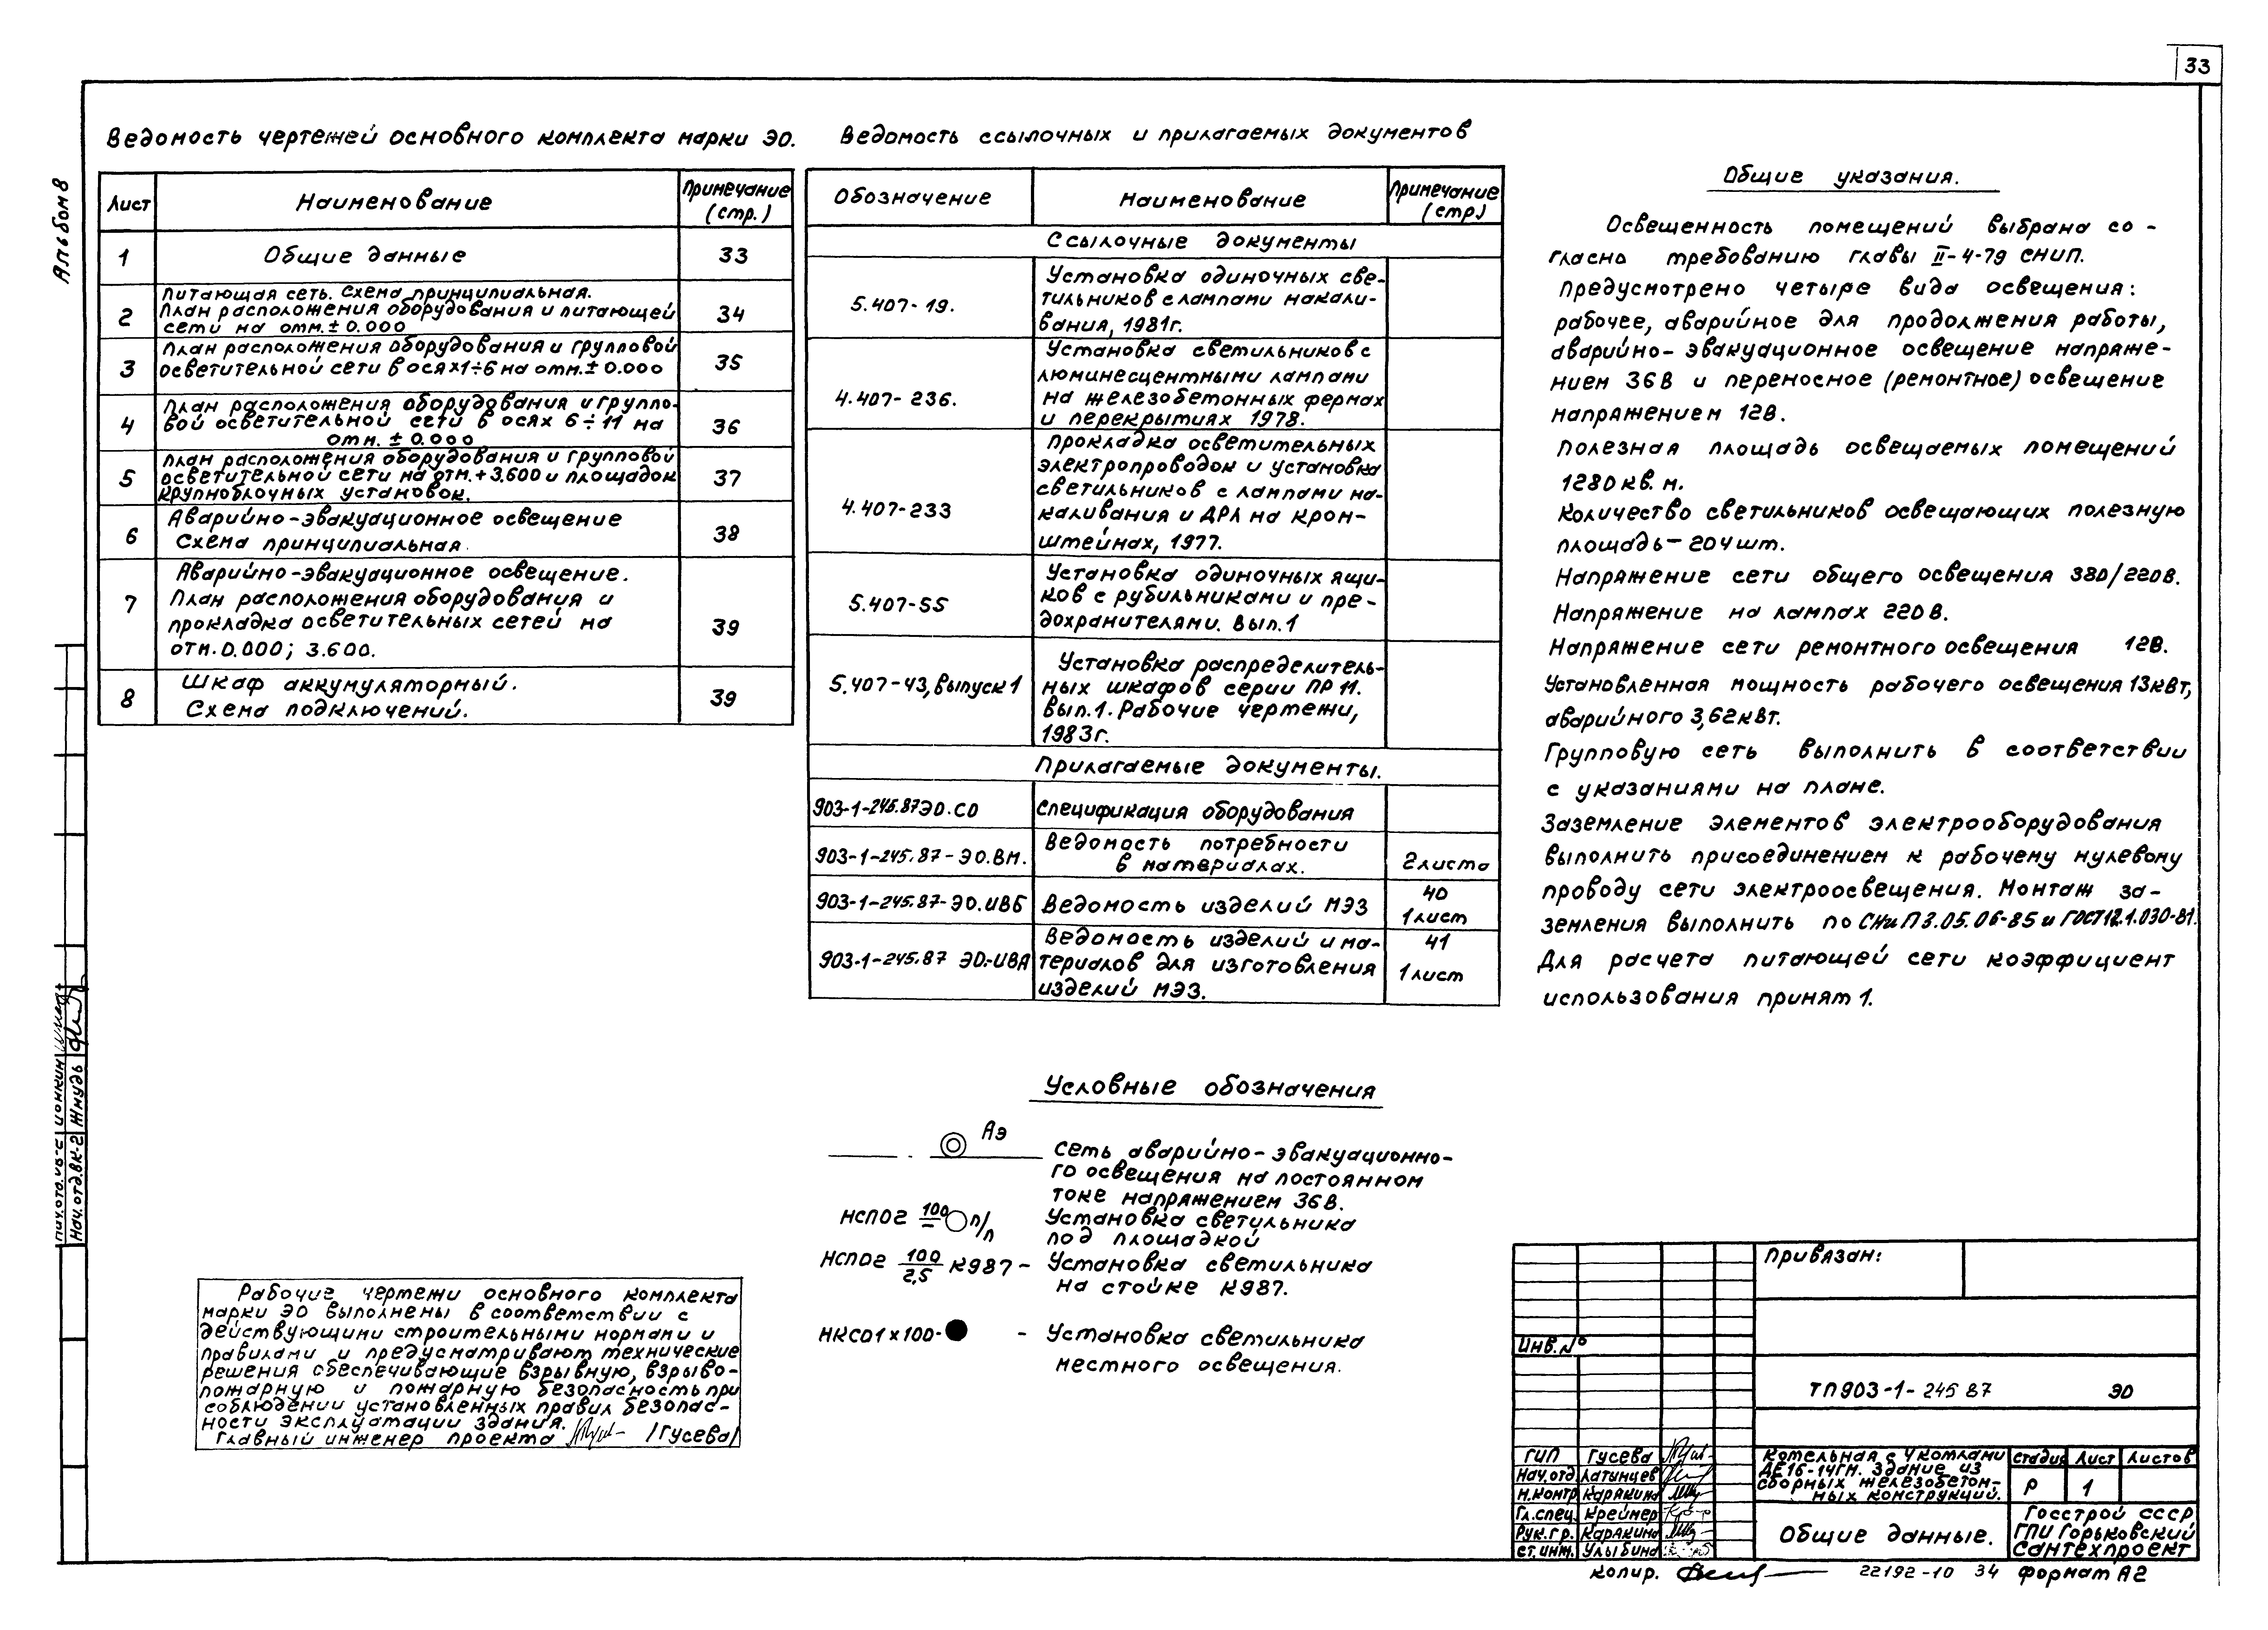 33
Альбом 8
Ведомость чертежей основного комплекта марки ЭО.
Лист Наименование Примечание (стр.)
1 Общие данные 33
2 Питающая сеть. Схема принципиальная.
План расположения оборудования и питающей
сети на отм. ± 0.000 34
3 План расположения оборудования и групповой
осветительной сети в осях 1÷6 на отм. ± 0.000 35
4 План расположения оборудования и группо-
вой осветительной сети в осях 6÷11 на
отм. ± 0.000 36
5 План расположения оборудования и групповой
осветительной сети на отм. + 3.600 и площадок
крупноблочных установок. 37
6 Аварийно-эвакуационное освещение
Схема принципиальная. 38
7 Аварийно-эвакуационное освещение.
План расположения оборудования и
прокладка осветительных сетей на
отм. 0.000; 3.600. 39
8 Шкаф аккумуляторный.
Схема подключений. 39
Ведомость ссылочных и прилагаемых документов
Обозначение Наименование Примечание (стр)
Ссылочные документы
5.407-19. Установка одиночных све-
тильников с лампами накали-
вания, 1981г.
4.407-236. Установка светильников с
люминесцентными лампами
на железобетонных фермах
и перекрытиях 1978.
4.407-233 Прокладка осветительных
электропроводок и установка
светильников с лампами на-
каливания и ДРЛ на крон-
штейнах, 1977.
5.407-55 Установка одиночных ящи-
ков с рубильниками и пре-
дохранителями. Вып.1
5.407-43, выпуск 1 Установка распределитель-
ных шкафов серии ПР 11.
Вып.1. Рабочие чертежи,
1983г.
Прилагаемые документы.
903-1-245.87 ЭО.СО Спецификация оборудования
903-1-245.87-ЭО.ВМ. Ведомость потребности
в материалах. 2 листа
903-1-245.87-ЭО.ИВБ Ведомость изделий МЭЗ 40
1 лист
903-1-245.87 ЭО.-ИВА Ведомость изделий и ма-
териалов для изготовления
изделий МЭЗ. 41
1 лист
Общие указания.
Освещенность помещений выбрана со-
гласно требованию главы II-4-79 СНИП.
Предусмотрено четыре вида освещения:
рабочее, аварийное для продолжения работы,
аварийно-эвакуационное освещение напряже-
нием 36В и переносное (ремонтное) освещение
напряжением 12В.
Полезная площадь освещаемых помещений
1280 кв. м.
Количество светильников освещающих полезную
площадь - 204 шт.
Напряжение сети общего освещения 380/220В.
Напряжение на лампах 220В.
Напряжение сети ремонтного освещения 12В.
Установленная мощность рабочего освещения 13кВт,
аварийного 3,62кВт.
Групповую сеть выполнить в соответствии
с указаниями на плане.
Заземление элементов электрооборудования
выполнить присоединением к рабочему нулевому
проводу сети электроосвещения. Монтаж за-
земления выполнить по СНиП 3.05.06-85 и ГОСТ 12.1.030-81.
Для расчета питающей сети коэффициент
использования принят 1.
Условные обозначения
Аэ Сеть аварийно-эвакуационно-
го освещения на постоянном
токе напряжением 36В.
НСП02 100/— п/п Установка светильника
под площадкой
НСП02 100/2,5 К987 - Установка светильника
на стойке К987.
НКС01х100- - Установка светильника
местного освещения.
Рабочие чертежи основного комплекта
марки ЭО выполнены в соответствии с
действующими строительными нормами и
правилами и предусматривают технические
решения обеспечивающие взрывную, взрыво-
пожарную и пожарную безопасность при
соблюдении установленных правил безопас-
ности эксплуатации здания.
Главный инженер проекта /Гусева/
Нач.отд.ВК-2 Жмудь
Привязан:
Инв. №
ТП903-1-245 87 ЭО
ГИП Гусева
Нач.отд. Латынцев
Н.контр Каракина
Гл.спец. Крейнер
Рук.гр. Каракина
Ст.инж. Улыбина
Котельная с 4 котлами
ДЕ16-14ГМ. Здание из
сборных железобетон-
ных конструкций.
Стадия Лист Листов
Р 1
Общие данные.
Госстрой СССР
ГПИ Горьковский
Сантехпроект
Копир. 22192-10 34 Формат А2